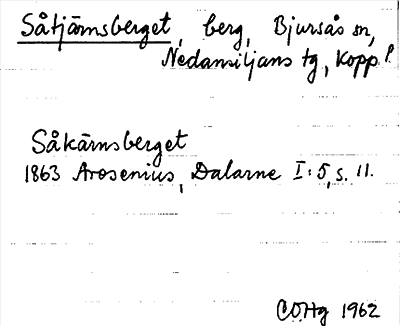 Såtjärnsberget, berg, Bjursås sn,
Nedansiljans tg, Kopp.
Såkärnsberget
1863 Arosenius, Dalarne I:5, s. 11.
COHg 1962